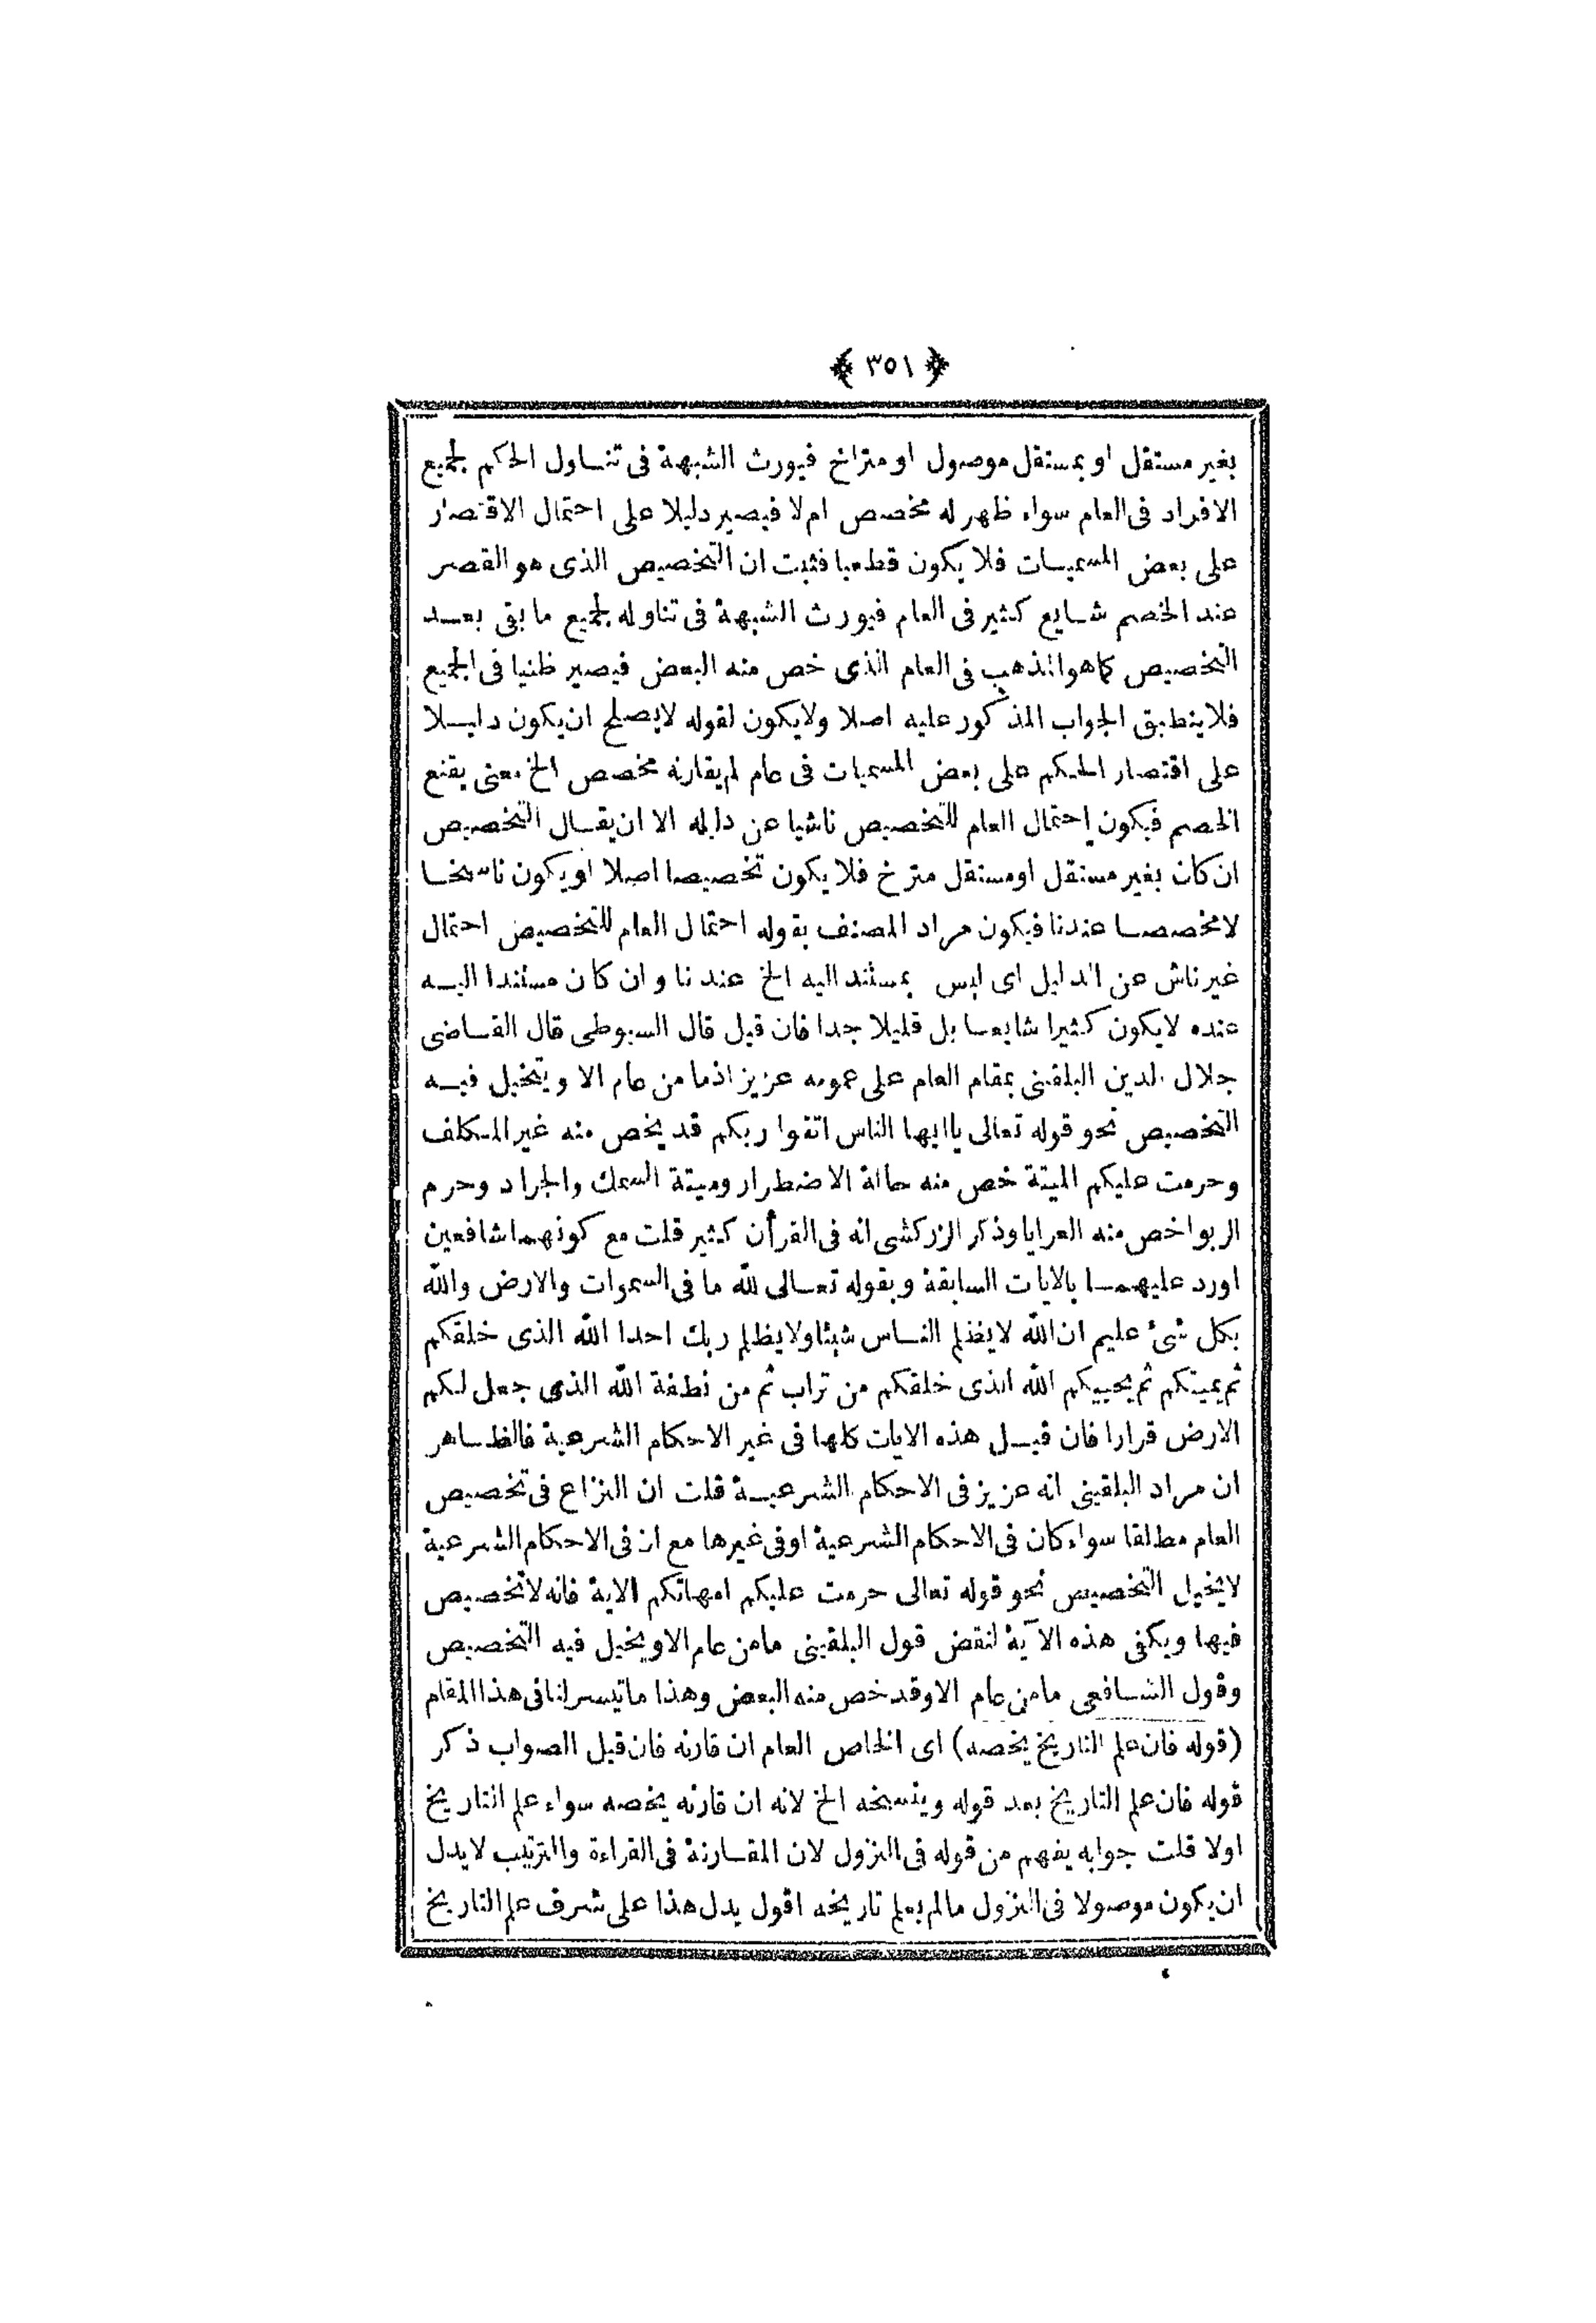 ﴿ ٣٥١ ﴾
بغير مستقل او بمستقل موصول او متراخ فيورث الشبهة فى تناول الحكم لجميع
الافراد فى العام سواء ظهر له مخصص ام لا فيصير دليلا على احتمال الاقتصار
على بعض المسميات فلا يكون قطعيا فثبت ان التخصيص الذى هو القصر
عند الخصم شايع كثير فى العام فيورث الشبهة فى تناوله لجميع ما بقى بعد
التخصيص كما هو المذهب فى العام الذى خص منه البعض فيصير ظنيا فى الجميع
فلا ينطبق الجواب المذكور عليه اصلا ولا يكون لقوله لا يصلح ان يكون دليلا
على اقتصار الحكم على بعض المسميات فى عام لم يقارنه مخصص الخ معنى يقنع
الخصم فيكون احتمال العام للتخصيص ناشيا عن دليله الا ان يقال التخصيص
ان كان بغير مستقل او مستقل مترخ فلا يكون تخصيصا اصلا او يكون ناسخا
لا مخصصا عندنا فيكون مراد المصنف بقوله احتمال العام للتخصيص احتمال
غير ناش عن الدليل اى ليس بمستند اليه الخ عندنا وان كان مستندا اليه
عنده لا يكون كثيرا شايعا بل قليلا جدا فان قيل قال السيوطى قال القاضى
جلال الدين البلقينى بمقام العام على عمومه عزيز اذ ما من عام الا ويتخيل فيه
التخصيص نحو قوله تعالى يا ايها الناس اتقوا ربكم قد يخص منه غير المكلف
وحرمت عليكم الميتة خص منه حالة الاضطرار وميتة السمك والجراد وحرم
الربوا خص منه العرايا وذكر الزركشى انه فى القرأن كثير قلت مع كونهما شافعين
اورد عليهما بالايات السابقة وبقوله تعالى لله ما فى السموات والارض والله
بكل شئ عليم ان الله لا يظلم الناس شيئا ولا يظلم ربك احدا الله الذى خلقكم
ثم يميتكم ثم يحييكم الله الذى خلقكم من تراب ثم من نطفة الله الذى جعل لكم
الارض قرارا فان قيل هذه الايات كلها فى غير الاحكام الشرعية فالظاهر
ان مراد البلقينى انه عزيز فى الاحكام الشرعية قلت ان النزاع فى تخصيص
العام مطلقا سواء كان فى الاحكام الشرعية او فى غيرها مع ان فى الاحكام الشرعية
لا يتخيل التخصيص نحو قوله تعالى حرمت عليكم امهاتكم الاية فانه لا تخصيص
فيها ويكفى هذه الآية لنقض قول البلقينى ما من عام الا ويخيل فيه التخصيص
وقول الشافعى ما من عام الا وقد خص منه البعض وهذا ما تيسر لنا فى هذا المقام
(قوله فان علم التاريخ يخصه) اى الخاص العام ان قارنه فان قيل الصواب ذكر
قوله فان علم التاريخ بعد قوله وينسخه الخ لانه ان قارنه يخصه سواء علم التاريخ
اولا قلت جوابه يفهم من قوله فى النزول لان المقارنة فى القراءة والترتيب لا يدل
ان يكون موصولا فى النزول ما لم يعلم تاريخه اقول يدل هذا على شرف علم التاريخ